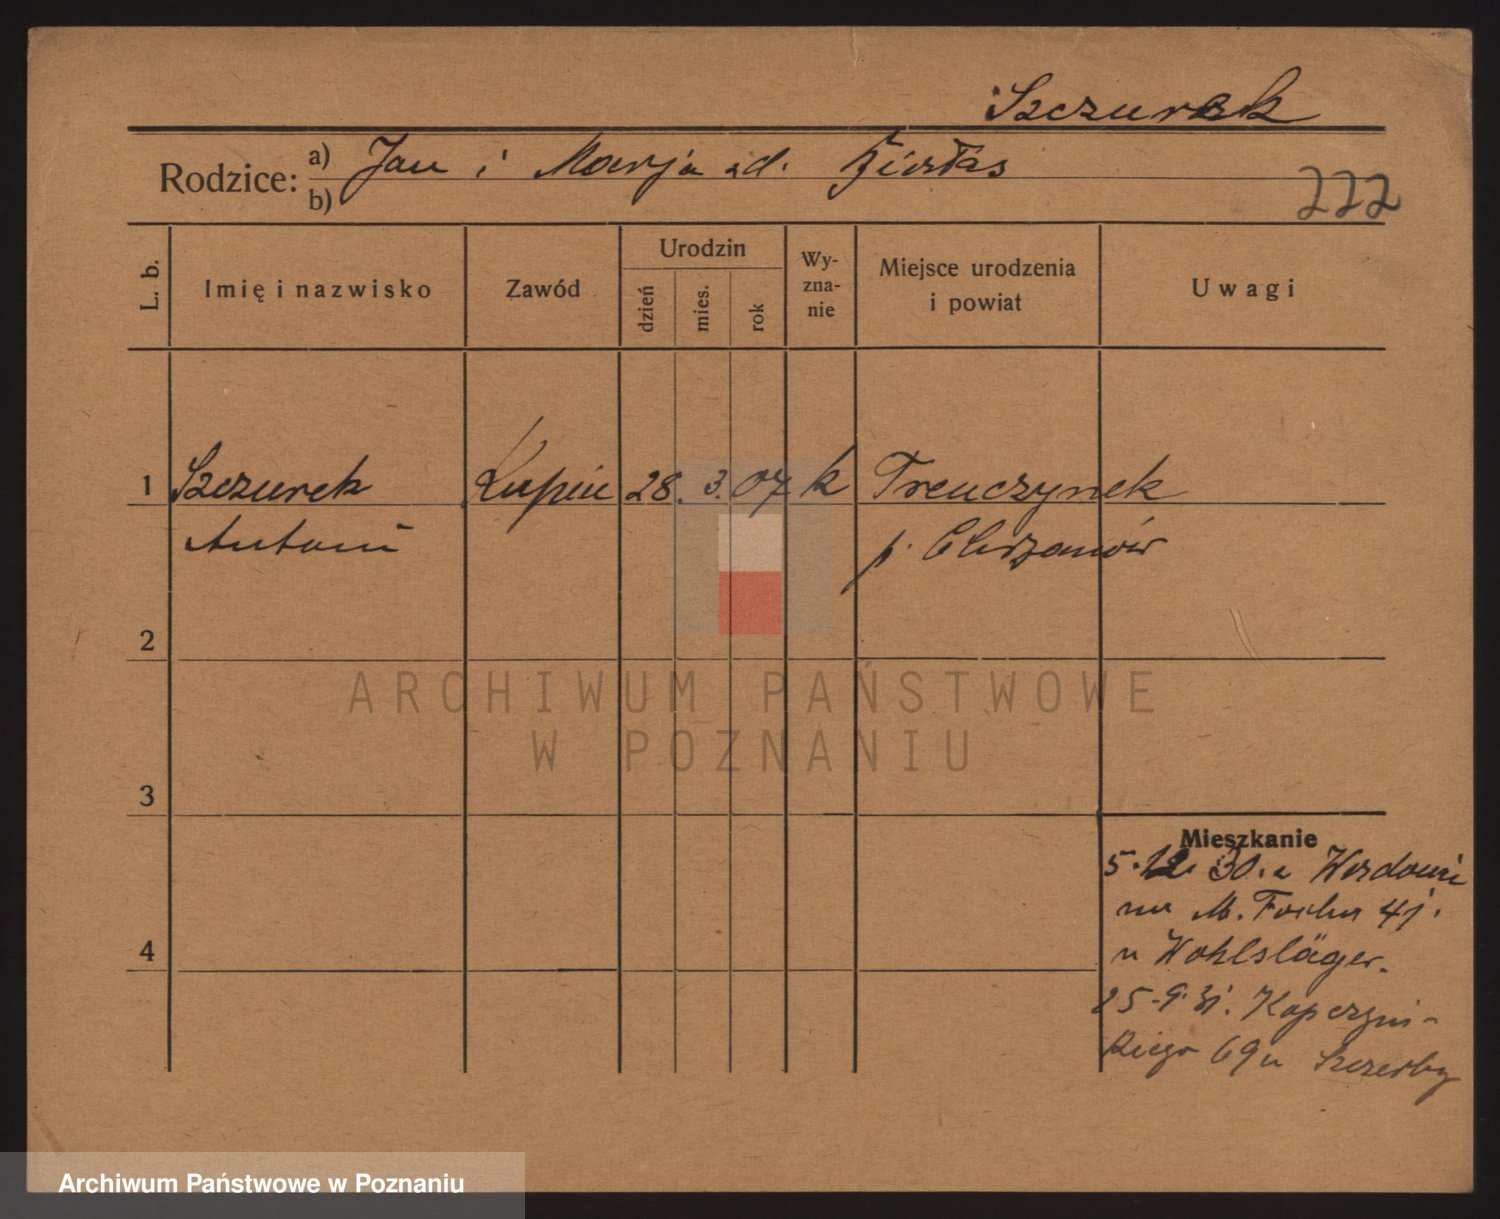 Szczurek
Rodzice: a) Jan i Marja zd.
b)
222
L. b. Imię i nazwisko Zawód Urodzin dzień mies. rok Wy-zna-nie Miejsce urodzenia i powiat Uwagi
1 Szczurek Kupiec 28. 3. 07 k Trenczynek
Antoni p. Chrzanów
2
3
4
Mieszkanie
5.12.30. z
na M. Focha 41.
u Wohlsläger.
25.9.31. Kopczyń-
skiego 69 u Szczerby
ARCHIWUM PAŃSTWOWE
W POZNANIU
Archiwum Państwowe w Poznaniu